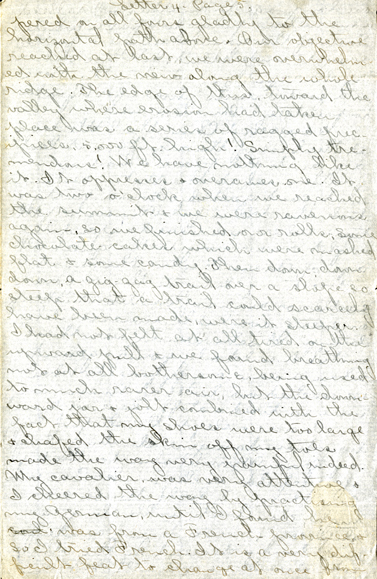 Letter 4. Page 5.
pered on all fours gladly to the
horizontal earth above. Our objective
reached at last, we were overwhelm
ed with the view along the whole
ridge. The edge of this, toward the
valley, where erosion had taken
place was a series of ragged prec
ipices, 5,000 ft. high! Simply tre
mendous! We have nothing like
it. It oppresses & overawes one. It
was two o'clock when we reached
the summit & we were ravenous
again, so we finished our rolls, some
chocolate cakes which were mashed
flat & some candy. Then down, down
down, a zig zag trail over a slope so
steep that a trail could scarcely
have been made, were it steeper.
I had not felt at all tired on the
upward pull & we found breathing
not at all bothersome, being used
to much rarer air, but the down
ward jar & jolt combined with the
fact that my shoes were too large
& chafed the skin off my toes
made the way very painful indeed.
My cavalier was very attentive &
I cheered the way by practising
my German, until I found
he was from a French province,
so I tried French. It is a very dif
ficult feat to change at once from